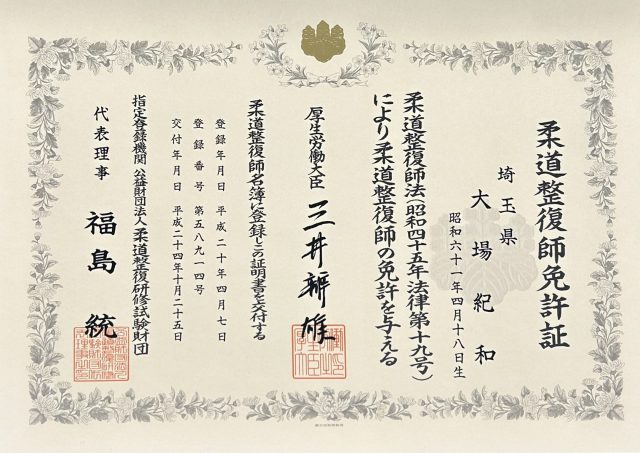 柔道整復師免許証
埼玉県
大場紀和
昭和六十一年四月十八日生
柔道整復師法(昭和四十五年法律第十九号)
により柔道整復師の免許を与える
厚生労働大臣 三井辨雄
柔道整復師名簿に登録しこの証明書を交付する
登録年月日 平成二十年四月七日
登録番号 第五八九一四号
交付年月日 平成二十四年十月二十五日
指定登録機関 公益財団法人柔道整復研修試験財団
代表理事 福島統